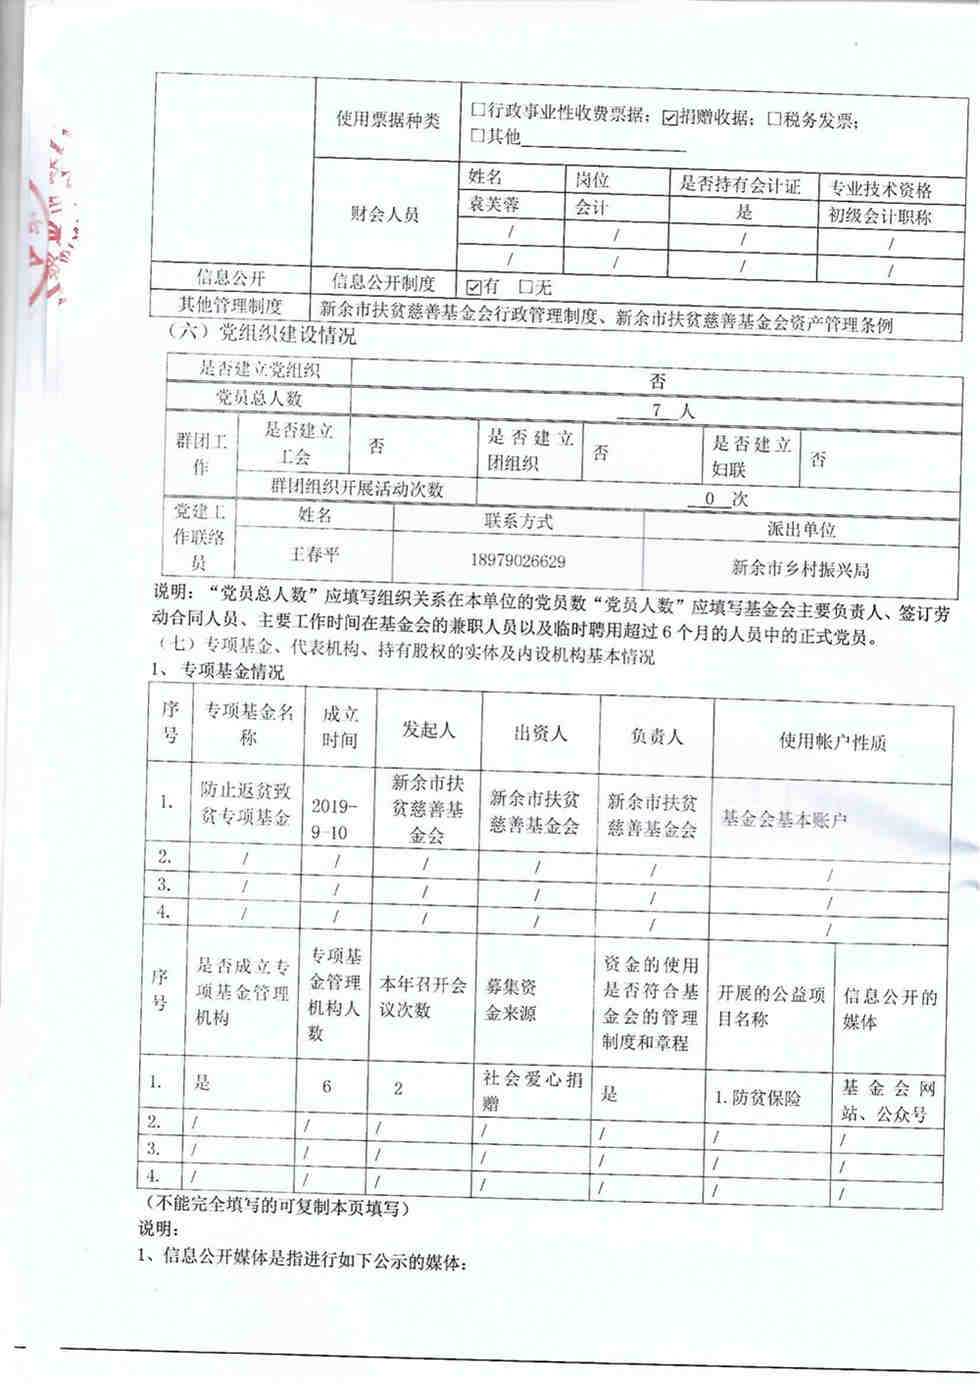 使用票据种类 □行政事业性收费票据；☑捐赠收据；□税务发票；
□其他
财会人员 姓名 岗位 是否持有会计证 专业技术资格
袁芙蓉 会计 是 初级会计职称
/ / / /
/ / / /
信息公开 信息公开制度 ☑有 □无
其他管理制度 新余市扶贫慈善基金会行政管理制度、新余市扶贫慈善基金会资产管理条例
（六）党组织建设情况
是否建立党组织 否
党员总人数 7 人
群团工作 是否建立工会 否 是否建立团组织 否 是否建立妇联 否
群团组织开展活动次数 0 次
党建工作联络员 姓名 联系方式 派出单位
王春平 18979026629 新余市乡村振兴局
说明：“党员总人数”应填写组织关系在本单位的党员数“党员人数”应填写基金会主要负责人、签订劳
动合同人员、主要工作时间在基金会的兼职人员以及临时聘用超过 6 个月的人员中的正式党员。
（七）专项基金、代表机构、持有股权的实体及内设机构基本情况
1、专项基金情况
序号 专项基金名称 成立时间 发起人 出资人 负责人 使用帐户性质
1. 防止返贫致贫专项基金 2019-9-10 新余市扶贫慈善基金会 新余市扶贫慈善基金会 新余市扶贫慈善基金会 基金会基本账户
2. / / / / / /
3. / / / / / /
4. / / / / / /
序号 是否成立专项基金管理机构 专项基金管理机构人数 本年召开会议次数 募集资金来源 资金的使用是否符合基金会的管理制度和章程 开展的公益项目名称 信息公开的媒体
1. 是 6 2 社会爱心捐赠 是 1.防贫保险 基金会网站、公众号
2. / / / / / / /
3. / / / / / / /
4. / / / / / / /
（不能完全填写的可复制本页填写）
说明：
1、信息公开媒体是指进行如下公示的媒体：